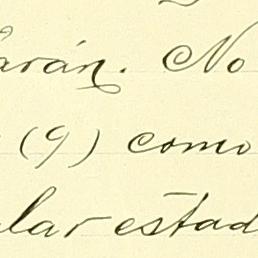 arán. No
(9) como
lar estad